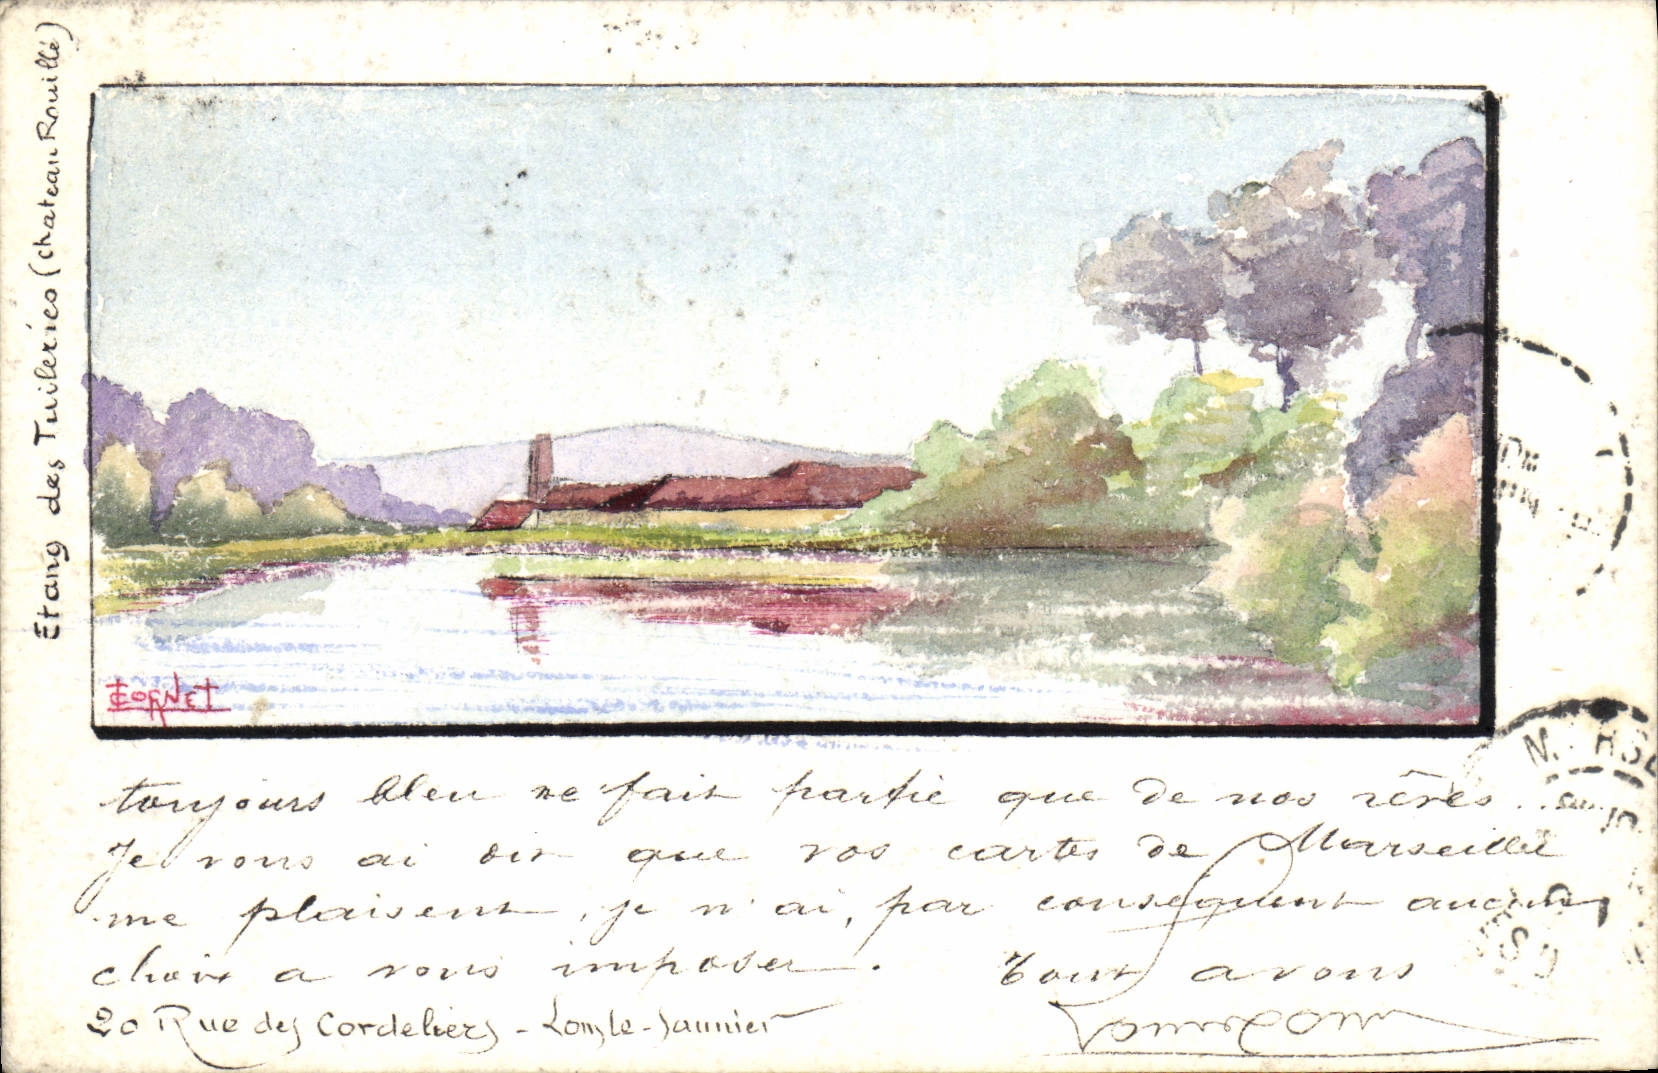 Etang des Tuileries (chateau Rouillé)
CORNET
toujours bleu ne fait partie que de nos rêves...
Je vous ai dit que vos cartes de Marseille
me plaisent, je n'ai, par conséquent aucun
choix a vous imposer. Tout a vous
20 Rue des Cordeliers - Lons le-Saunier